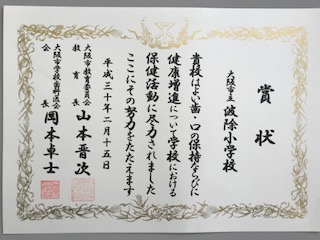 賞状
大阪市立 波除小学校
貴校はよい歯・口の保持ならびに
健康増進について学校における
保健活動に尽力されました
ここにその努力をたたえます
平成三十年二月十五日
大阪市教育委員会
教育長 山本晋次
大阪市学校歯科医会
会長 岡本卓士